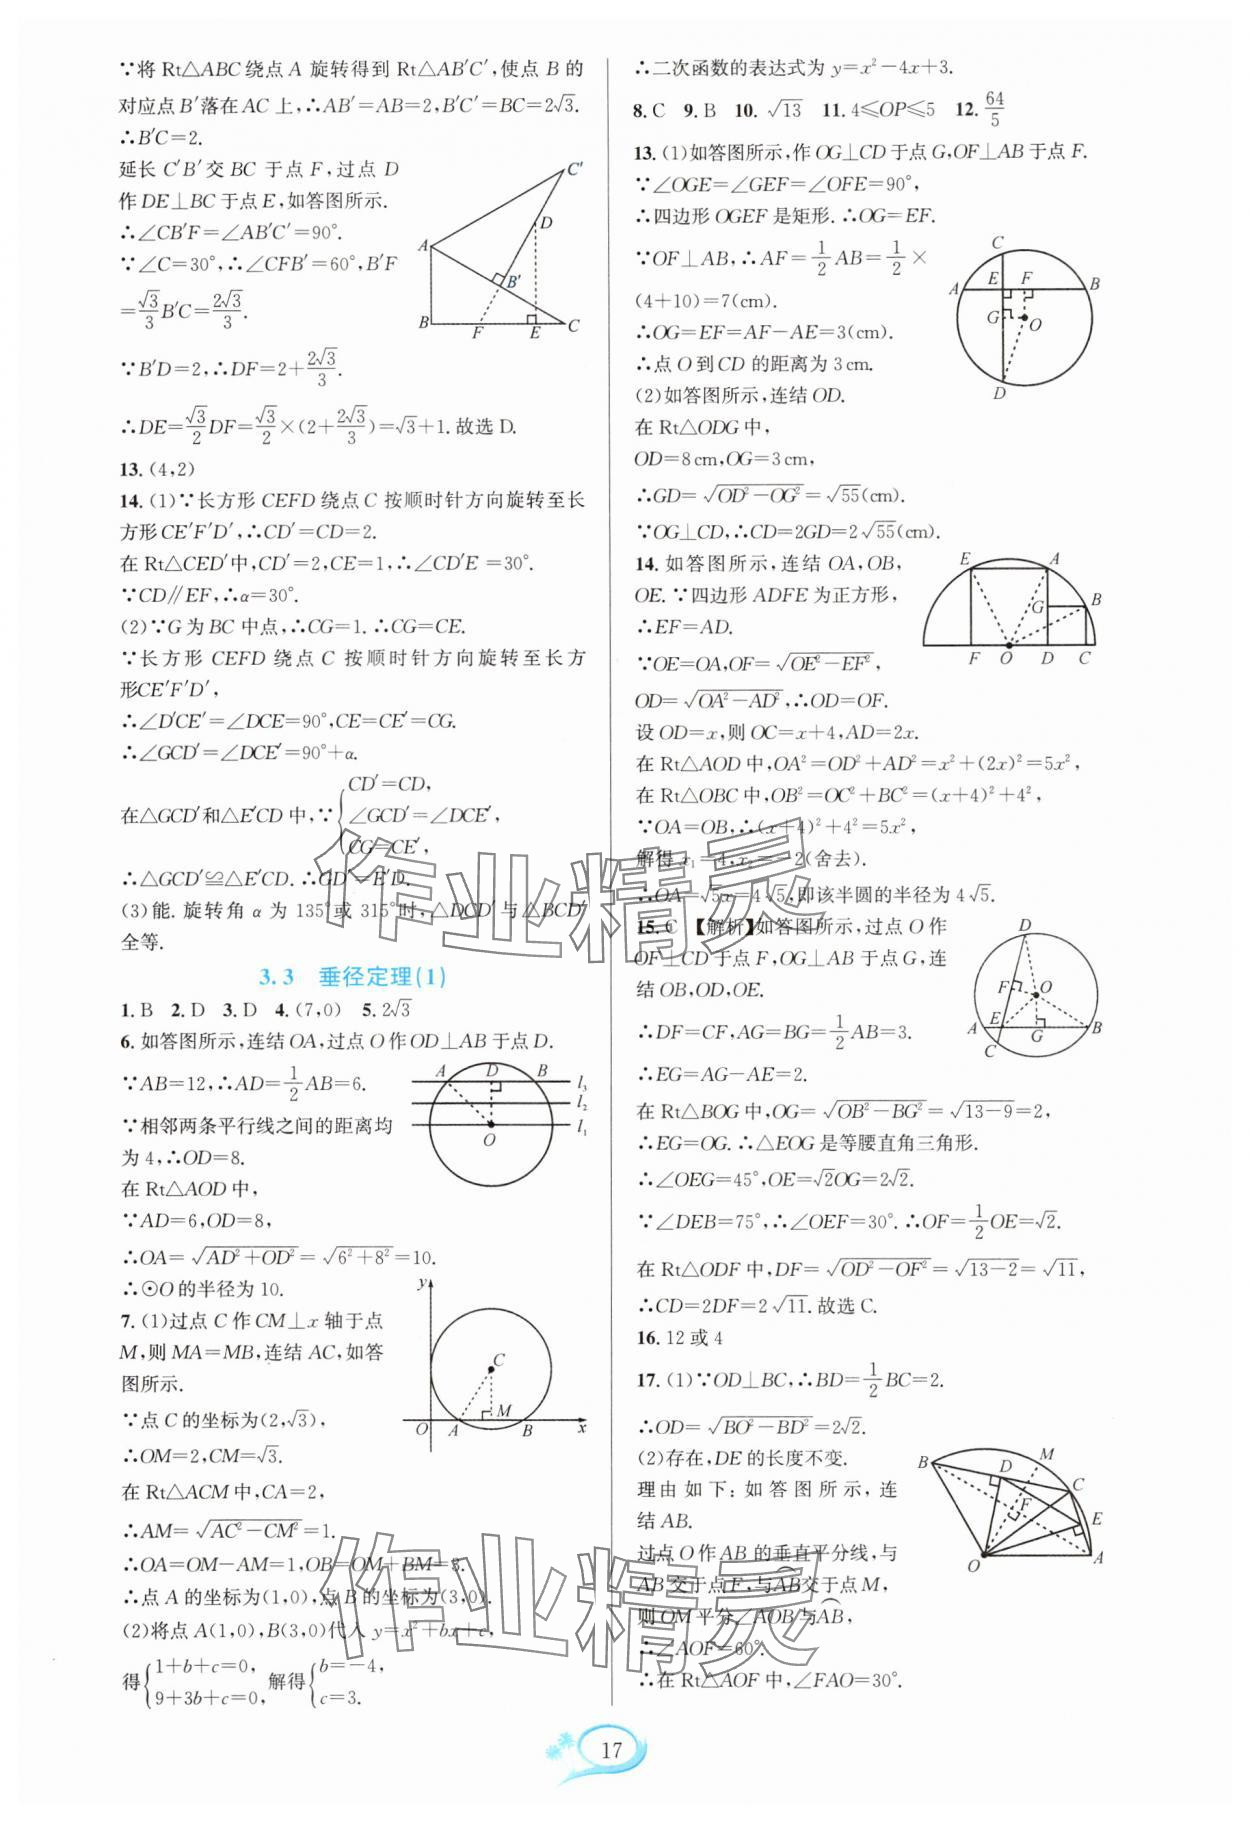 ∵将 Rt△ABC 绕点 A 旋转得到 Rt△AB′C′,使点 B 的
对应点 B′落在 AC 上,∴AB′=AB=2,B′C′=BC=2√3.
∴B′C=2.
延长 C′B′交 BC 于点 F,过点 D
作 DE⊥BC 于点 E,如答图所示.
∴∠CB′F=∠AB′C′=90°.
∵∠C=30°,∴∠CFB′=60°,B′F
=√3/3 B′C=2√3/3.
∵B′D=2,∴DF=2+2√3/3.
∴DE=√3/2 DF=√3/2×(2+2√3/3)=√3+1.故选 D.
A B C D E F B′ C′
13. (4,2)
14. (1)∵长方形 CEFD 绕点 C 按顺时针方向旋转至长
方形 CE′F′D′,∴CD′=CD=2.
在 Rt△CED′中,CD′=2,CE=1,∴∠CD′E=30°.
∵CD∥EF,∴α=30°.
(2)∵G 为 BC 中点,∴CG=1.∴CG=CE.
∵长方形 CEFD 绕点 C 按顺时针方向旋转至长方
形CE′F′D′,
∴∠D′CE′=∠DCE=90°,CE=CE′=CG.
∴∠GCD′=∠DCE′=90°+α.
在△GCD′和△E′CD 中,∵{CD′=CD,
∠GCD′=∠DCE′,
CG=CE′,
∴△GCD′≌△E′CD.∴GD′=E′D.
(3)能.旋转角 α 为 135°或 315°时,△DCD′与△BCD′
全等.
3.3 垂径定理(1)
1. B 2. D 3. D 4. (7,0) 5. 2√3
6. 如答图所示,连结 OA,过点 O 作 OD⊥AB 于点 D.
∵AB=12,∴AD=1/2 AB=6.
∵相邻两条平行线之间的距离均
为 4,∴OD=8.
在 Rt△AOD 中,
∵AD=6,OD=8,
∴OA=√(AD²+OD²)=√(6²+8²)=10.
∴⊙O 的半径为 10.
A D B O l₃ l₂ l₁
7. (1)过点 C 作 CM⊥x 轴于点
M,则 MA=MB,连结 AC,如答
图所示.
∵点 C 的坐标为(2,√3),
∴OM=2,CM=√3.
在 Rt△ACM 中,CA=2,
∴AM=√(AC²−CM²)=1.
∴OA=OM−AM=1,OB=OM+BM=3.
∴点 A 的坐标为(1,0),点 B 的坐标为(3,0).
(2)将点 A(1,0),B(3,0)代入 y=x²+bx+c,
得{1+b+c=0,
9+3b+c=0,
解得{b=−4,
c=3.
y C M O A B x
∴二次函数的表达式为 y=x²−4x+3.
8. C 9. B 10. √13 11. 4≤OP≤5 12. 64/5
13. (1)如答图所示,作 OG⊥CD 于点 G,OF⊥AB 于点 F.
∵∠OGE=∠GEF=∠OFE=90°,
∴四边形 OGEF 是矩形.∴OG=EF.
∵OF⊥AB,∴AF=1/2 AB=1/2×
(4+10)=7(cm).
∴OG=EF=AF−AE=3(cm).
∴点 O 到 CD 的距离为 3 cm.
(2)如答图所示,连结 OD.
在 Rt△ODG 中,
OD=8 cm,OG=3 cm,
∴GD=√(OD²−OG²)=√55(cm).
∵OG⊥CD,∴CD=2GD=2√55(cm).
C E F A B G O D
14. 如答图所示,连结 OA,OB,
OE.∵四边形 ADFE 为正方形,
∴EF=AD.
∵OE=OA,OF=√(OE²−EF²),
OD=√(OA²−AD²),∴OD=OF.
设 OD=x,则 OC=x+4,AD=2x.
在 Rt△AOD 中,OA²=OD²+AD²=x²+(2x)²=5x²,
在 Rt△OBC 中,OB²=OC²+BC²=(x+4)²+4²,
∵OA=OB,∴(x+4)²+4²=5x²,
解得 x₁=4,x₂=−2(舍去).
∴OA=√5x=4√5,即该半圆的半径为 4√5.
E A G B F O D C
15. C 【解析】如答图所示,过点 O 作
OF⊥CD 于点 F,OG⊥AB 于点 G,连
结 OB,OD,OE.
∴DF=CF,AG=BG=1/2 AB=3.
∴EG=AG−AE=2.
在 Rt△BOG 中,OG=√(OB²−BG²)=√(13−9)=2,
∴EG=OG.∴△EOG 是等腰直角三角形.
∴∠OEG=45°,OE=√2OG=2√2.
∵∠DEB=75°,∴∠OEF=30°.∴OF=1/2 OE=√2.
在 Rt△ODF 中,DF=√(OD²−OF²)=√(13−2)=√11,
∴CD=2DF=2√11.故选 C.
D F O A E G B C
16. 12 或 4
17. (1)∵OD⊥BC,∴BD=1/2 BC=2.
∴OD=√(BO²−BD²)=2√2.
(2)存在,DE 的长度不变.
理由如下:如答图所示,连
结 AB.
过点 O 作 AB 的垂直平分线,与
AB 交于点 F,与AB交于点 M,
则 OM 平分∠AOB 与AB,
∴∠AOF=60°.
∴在 Rt△AOF 中,∠FAO=30°.
B D M C F E O A
作业精灵
作业精灵
17